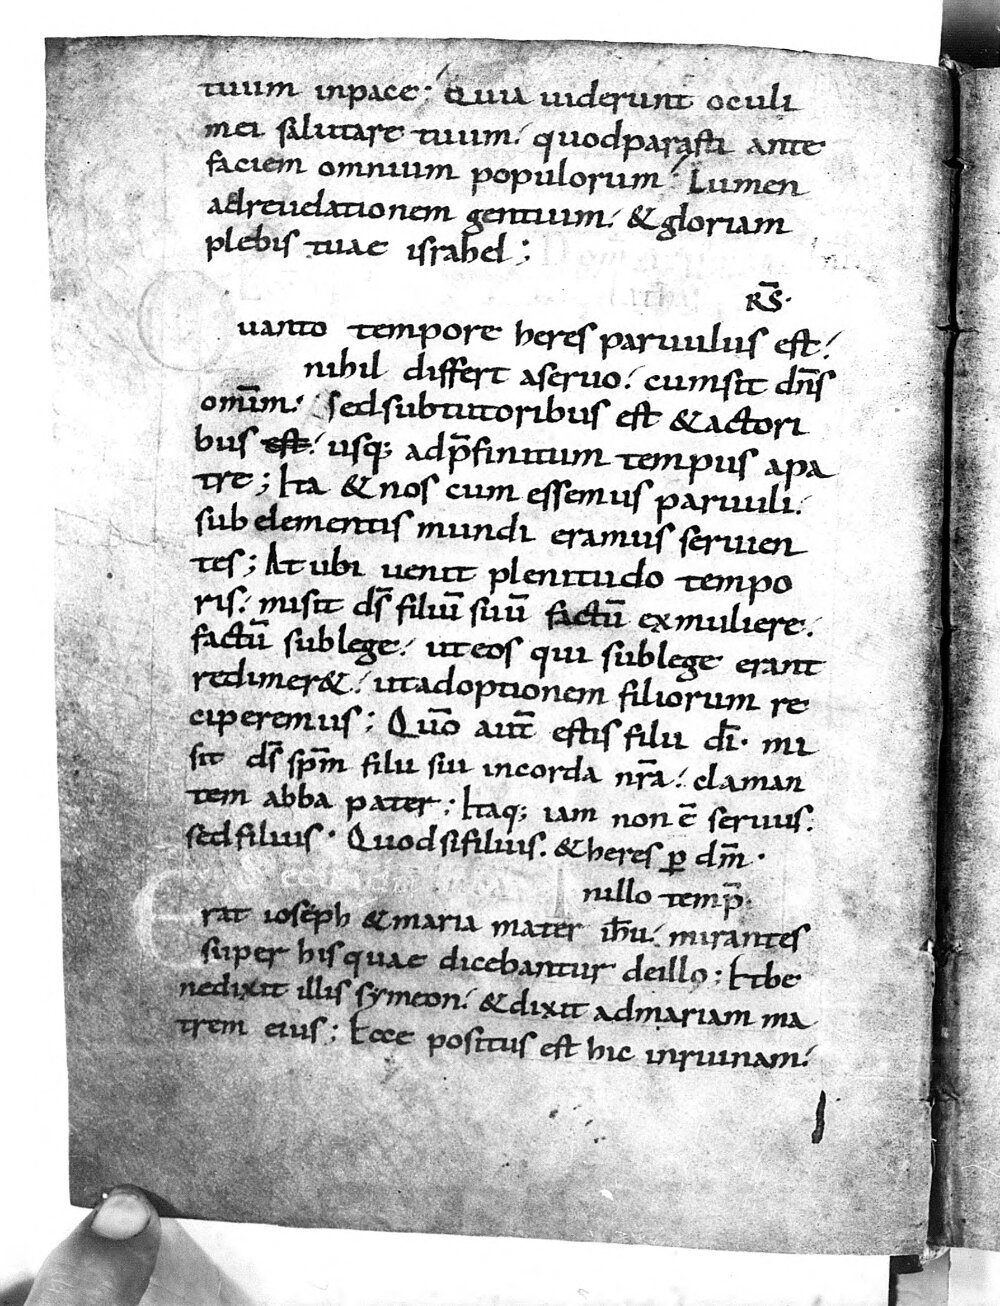 tuum inpace; Quia uiderunt oculi
mei salutare tuum; quodparasti ante
faciem omnium populorum; Lumen
adreuelationem gentium; &gloriam
plebis tuae israhel;
R̄S·
uanto tempore heres paruulus est;
nihil differt aseruo; cumsit dn̄s
om̄ium; sedsubtutoribus est &actori
bus est; usq; adp̄finitum tempus apa
tre; Ita &nos cum essemus paruuli;
sub elementis mundi eramus seruien
tes; At ubi uenit plenitudo tempo
ris; misit ds̄ filiū suū factū exmuliere;
factū sublege; uteos qui sublege erant
redimer&; utadoptionem filiorum re
ciperemus; Qūo aut̄ estis filii dī· mi
sit ds̄ sp̄m filii sui incorda nr̄a; claman
tem abba pater; Itaq; iam non ē seruus;
sedfilius· Quodsifilius; &heres ꝑ dm̄·
nillo temp̄·
rat ioseph &maria mater ih̄u; mirantes
super hisquae dicebantur deillo; Etbe
nedixit illis symeon; &dixit admariam ma
trem eius; Ecce positus est hic inruinam;